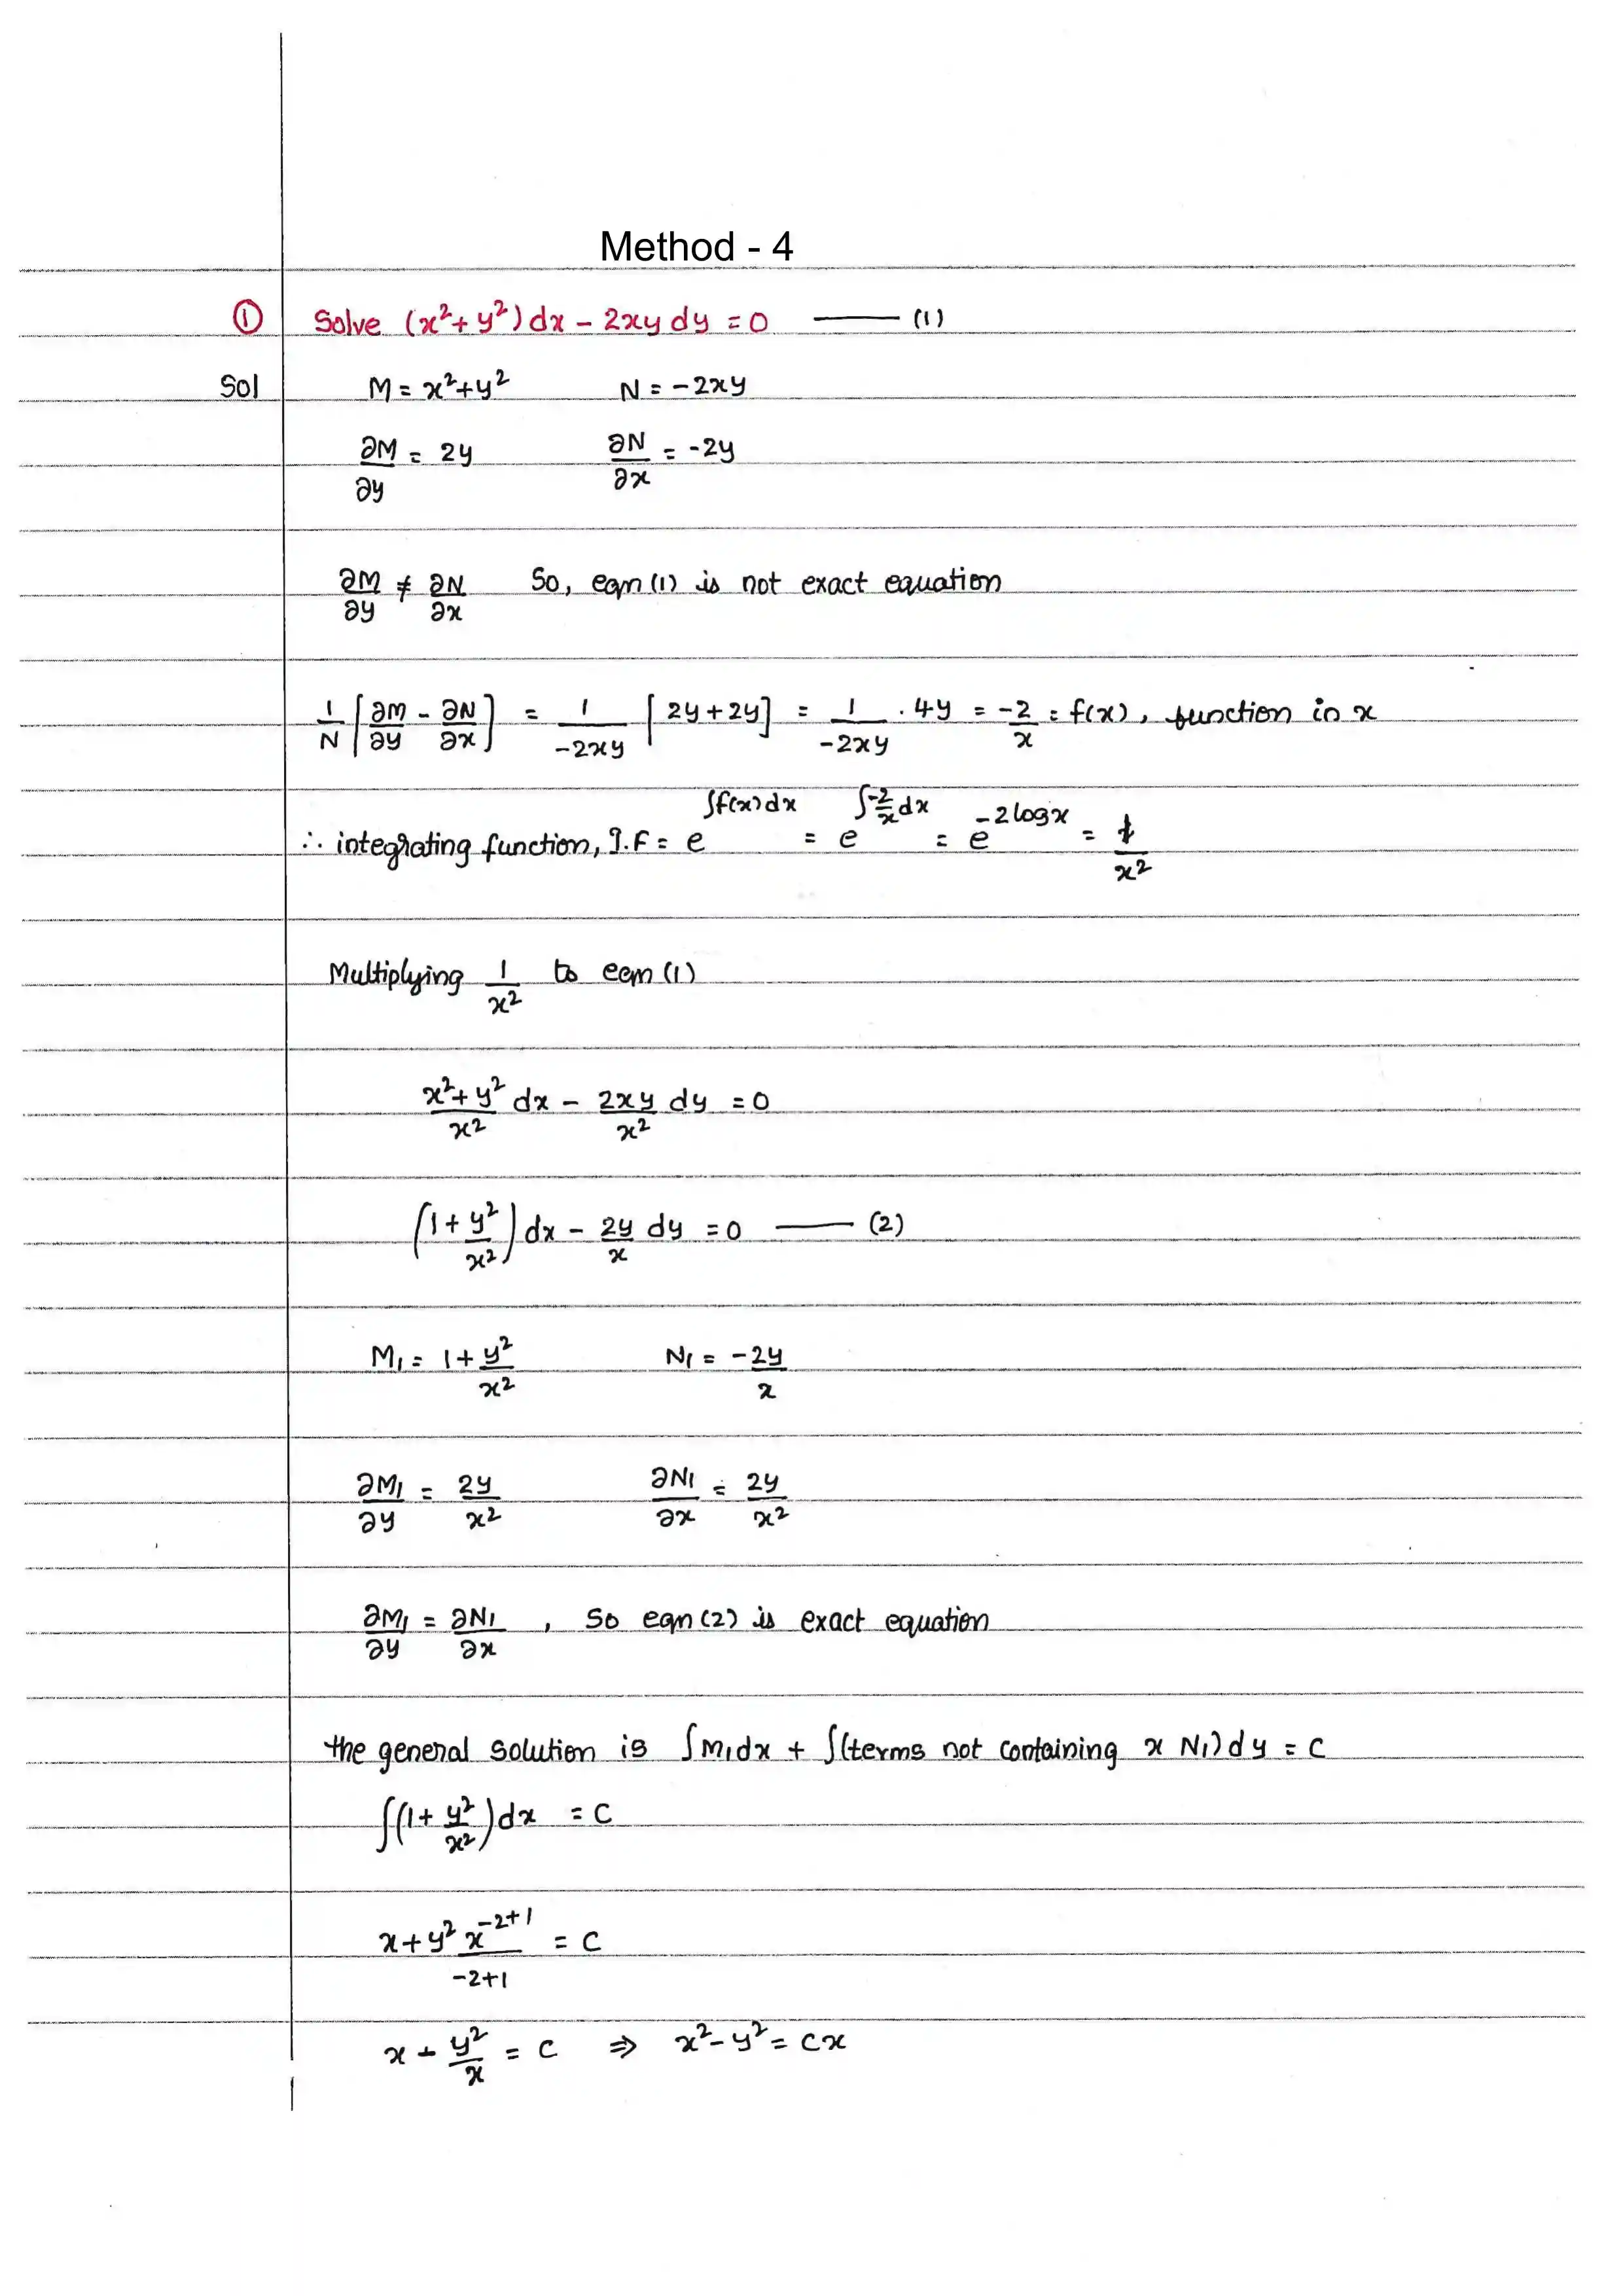 Method - 4
① Solve (x²+y²)dx - 2xy dy = 0 ——— (1)
Sol M = x²+y² N = -2xy
∂M/∂y = 2y ∂N/∂x = -2y
∂M/∂y ≠ ∂N/∂x So, eqn (1) is not exact equation
1/N [∂M/∂y - ∂N/∂x] = 1/-2xy [2y+2y] = 1/-2xy . 4y = -2/x = f(x), function in x
∴ integrating function, I.F = e^∫f(x)dx = e^∫-2/x dx = e^-2logx = 1/x²
Multiplying 1/x² to eqn (1)
x²+y²/x² dx - 2xy/x² dy = 0
(1+y²/x²)dx - 2y/x dy = 0 ——— (2)
M₁ = 1+y²/x² N₁ = -2y/x
∂M₁/∂y = 2y/x² ∂N₁/∂x = 2y/x²
∂M₁/∂y = ∂N₁/∂x , So eqn (2) is exact equation
the general solution is ∫M₁dx + ∫(terms not containing x N₁)dy = C
∫(1+y²/x²)dx = C
x+y² x^-2+1/-2+1 = C
x - y²/x = C ⇒ x²-y² = cx